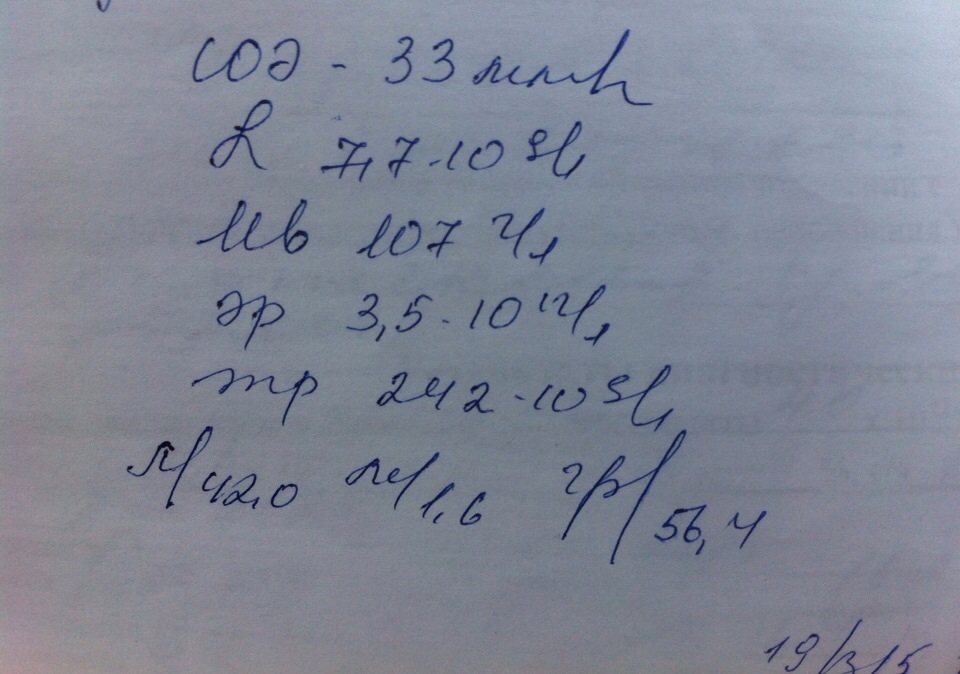 СОЭ - 33 мм/ч
L 7,7·10 9/л
Нв 107 г/л
эр 3,5·10 12/л
тр 242·10 9/л
л/42,0 м/1,6 гр/56,4
19/